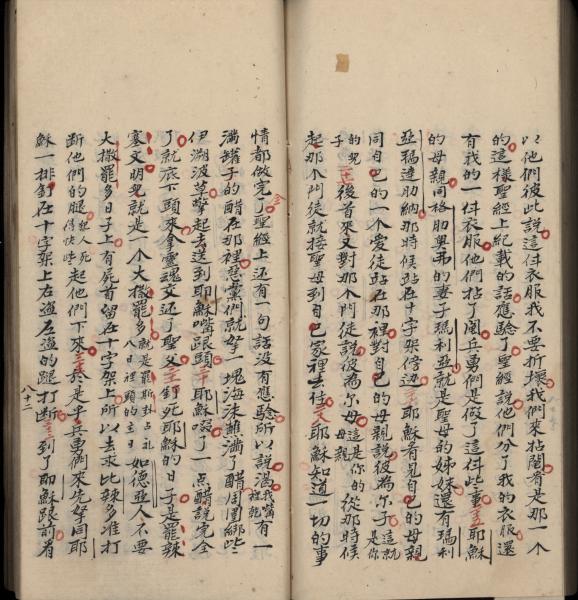 以他們彼此説這件衣服我不要折壞我們來拈鬮看是那一个
的這樣聖經上紀載的話應驗了聖經説他們分了我的衣服還
有我的一件衣服他們拈了鬮兵勇們是做了這件些事耶穌
的母親同格肋奧弗的妻子瑪利亞就是聖母的姊妹還有瑪利
亞瑪達肋納那時候站在十字架傍邊耶穌看見自己的母親
同自己的一个愛徒站在那裡對自己的母親説彼為尔子這就是你
的兒子後首來又對那个門徒説彼為尔母這是你的母親從那時候
起那个門徒就接聖母到自己家裡去住二八耶穌知道一切的事
情都做完了聖經上还有一句話没有應驗所以説渴我嘴裡乾有一
滿罐子的醋在那裡慈黨們就拏一塊海沫蘸滿了醋周圍綁些
伊溯波草擎起去送到耶穌嘴跟頭三十耶穌啜了一点醋説完全
了就底下頭來拿靈魂交还了聖父三一釘死耶穌的日子是罷辣
塞文明兒就是一个大撒罷多就是罷斯卦占礼八日裡頭的主日如德亞人不要
大撒罷多日子上有屍首留在十字架上所以去求比辣多准打
斷他們的腿起他們下來三二於是乎兵勇們來先拏同耶
穌一排釘在十字架上右邊左邊的腿打斷三三到了耶穌跟前看
八十二